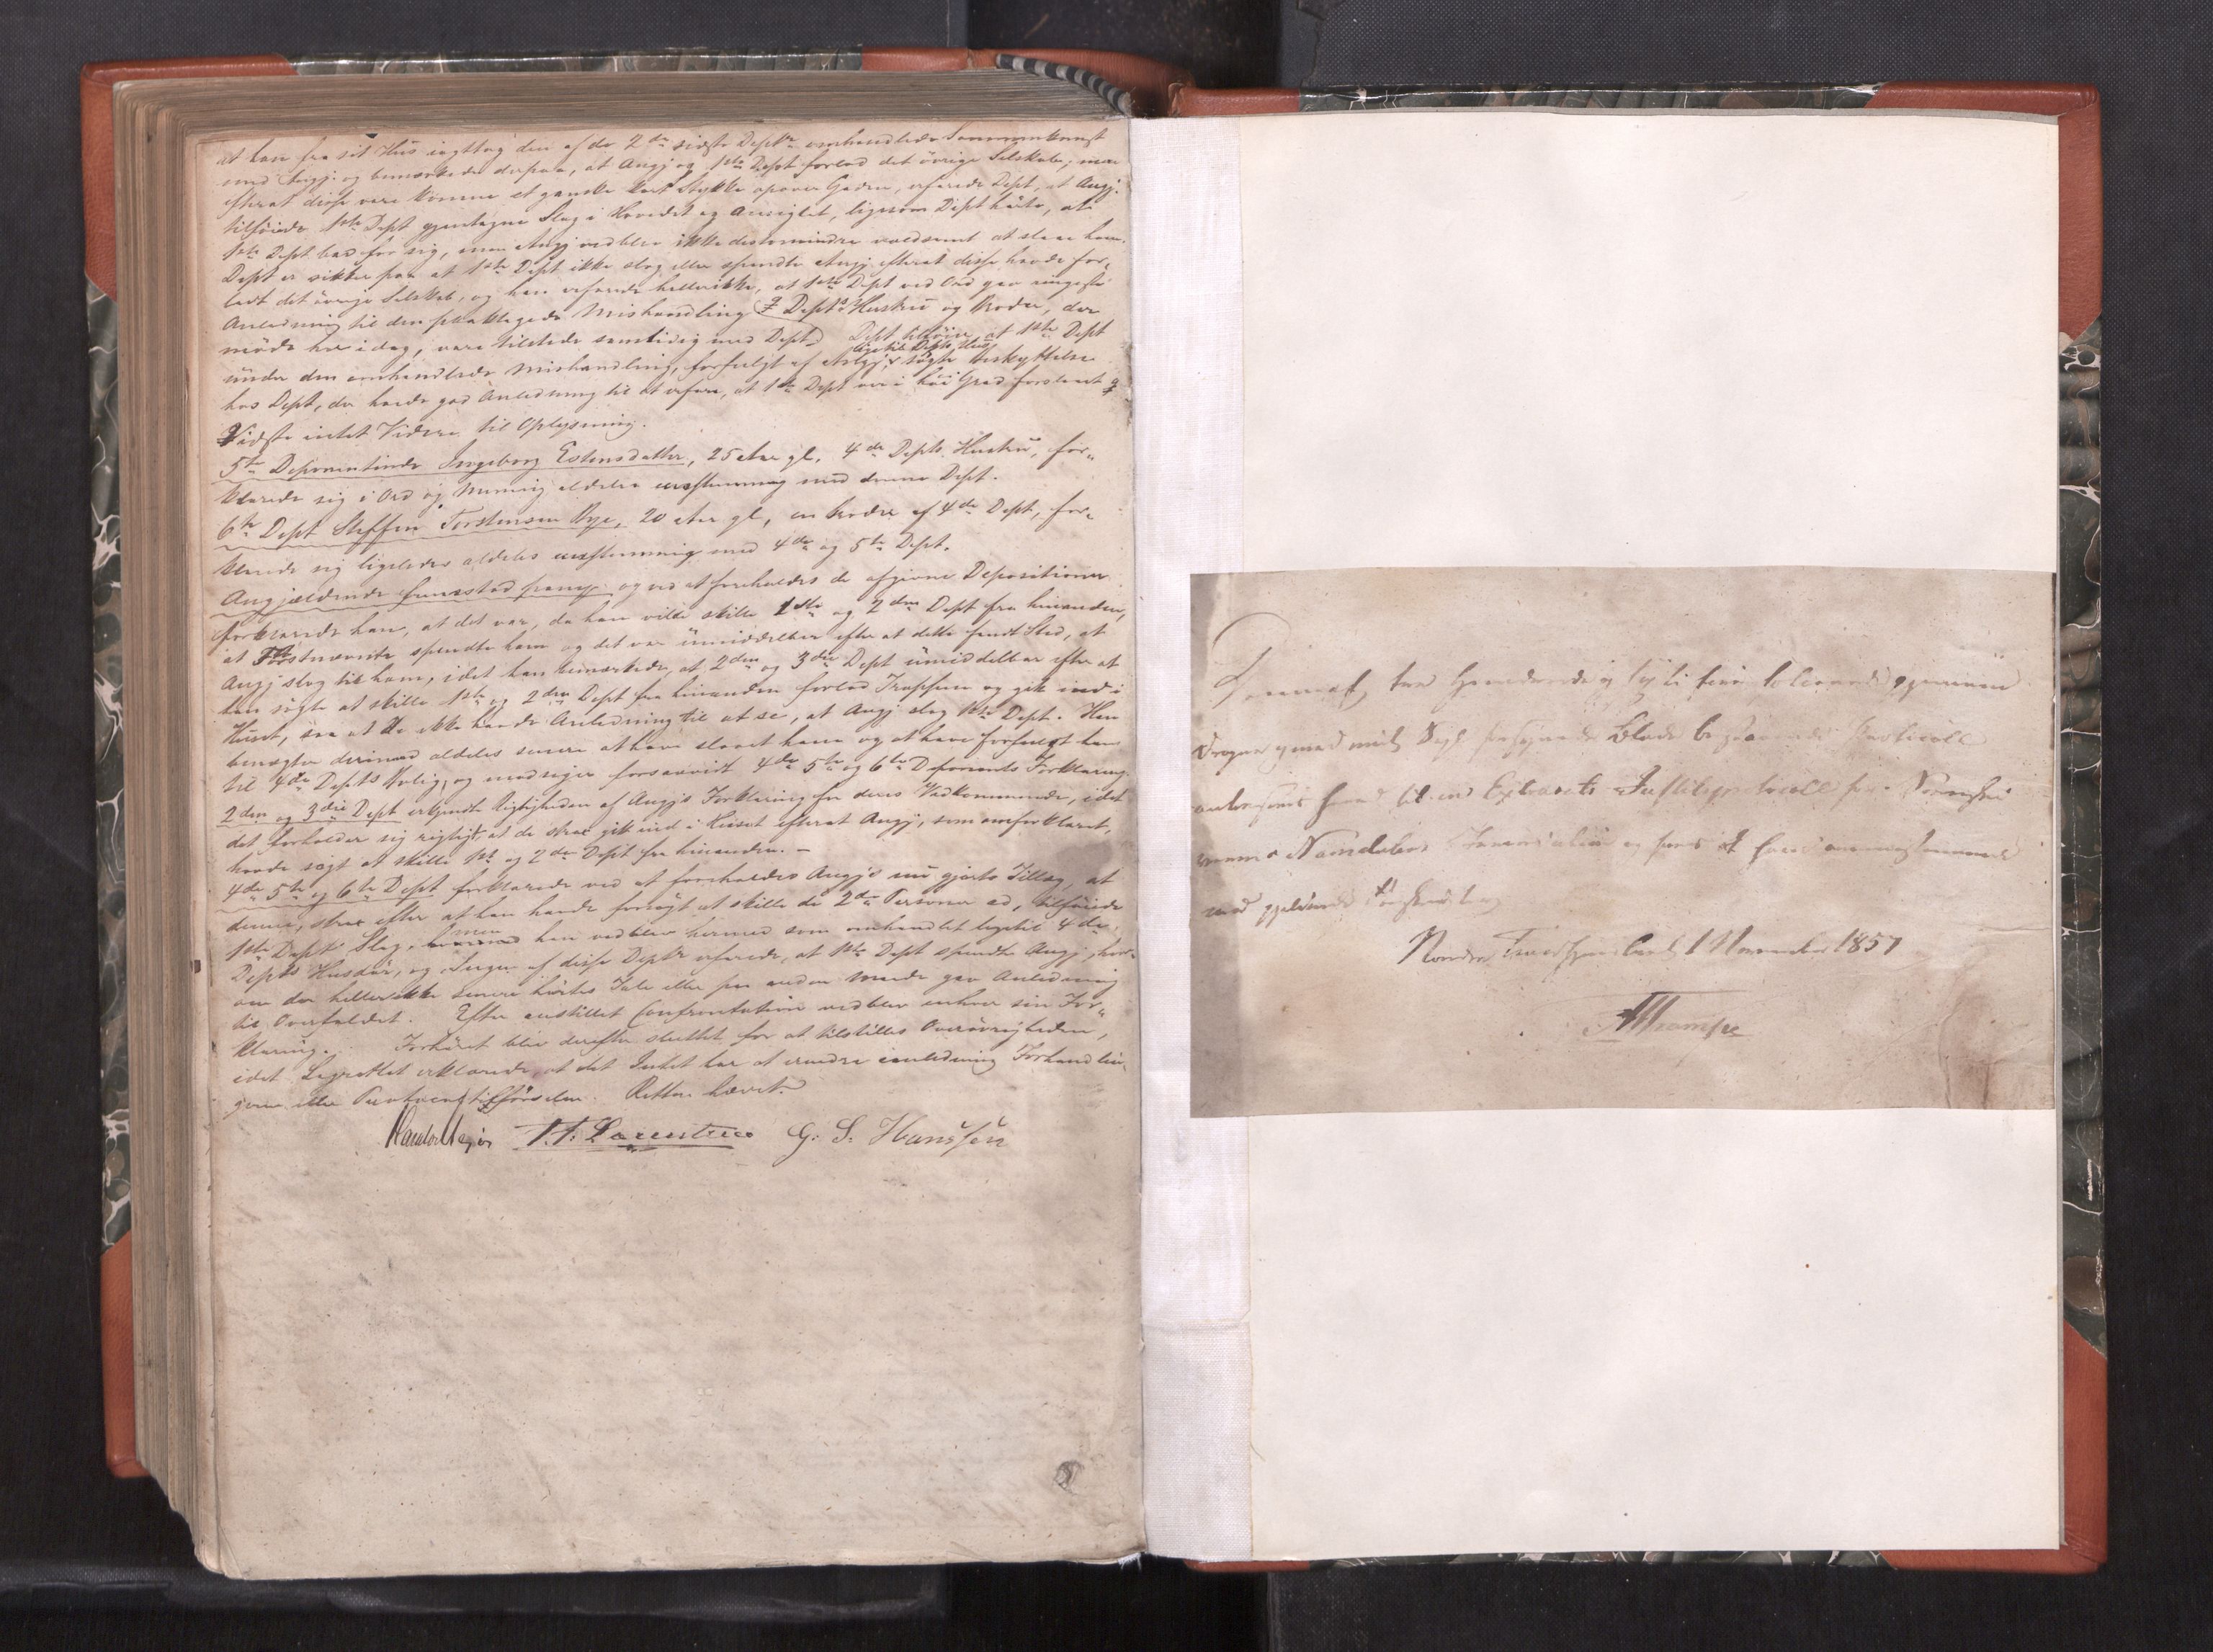 at han fra sit Hus iagttog den af de 2de sidste Depte omhandlede Sammenkomst
med Angj. og bemærkede derpaa, at Angj og 1ste Dept forlod det övrige Selskab; men
efterat disse vare komne et ganske kort Stykke opover Gaden, erfarede Dept, at Angj.
tilföiede 1ste Dept gjentagne Slag i Hovedet og Ansigtet, ligesom Dept hörte, at
1ste Dept bad for sig, men Angj vedblev ikke destomindre voldsomt at slaae ham.
Dept er sikker paa at 1ste Dept ikke slog eller spændte Angj efterat disse havde for„
ladt det övrige Selskab, og han erfarede hellerikke, at 1ste Dept ved Ord gav ringeste
Anledning til den paaklagede Mishandling Depts Hustru og Broder, der
möde her idag, vare tilstede samtidig med Dept. Dept tilföier at 1ste Dept
under den omhandlede Mishandling, forfulgt af Angj, ligetil Depts Hus sögte Beskyttelse
hos Dept, der havde god Anledning til at erfare, at 1ste Dept var i höi Grad forslaaet
Vidste intet Videre til Oplysning.
5te Deponentinde Ingeborg Estensdatter, 25 Aar gl. 4de Depts Hustru, for„
klarede sig i Ord og Mening aldeles overstemmig med denne Dept.
6te Dept Steffen Torstensen Bye, 20 Aar gl, en Broder af 4de Dept, for„
klarede sig ligeledes aldeles overstemmig med 4de og 5te Dept.
Angjældende fremstod paany og ved at foreholdes de afgivne Depositioner
forklarede han, at det var, da han vilde skille 1ste og 2den Dept fra hinanden,
at Förstnævnte spændte ham og det var ümiddelbar efter at dette fandt Sted, at
Angj slog til ham, idet han bemærkede, at 2den og 3die Dept ümiddelbar efter at
han sögte at skille 1ste og 2den Dept fra hinanden forlod Trappen og gik ind i
Huset, saa at de ikke havde Anledning til at se, at Angj slog 1ste Dept. Han
benægter derimod aldeles senere at have slaaet ham og at have forfulgt ham
til 4de Depts Bolig, og modsiger forsaavidt 4de 5te og 6te Deponents Forklaring.
2den og 3die Dept erkjendte Rigtigheden af Angjs Forklaring for deres Vedkommende, idet
det forholder sig rigtigt, at de strax gik ind i Huset efterat Angj, som omforklaret,
havde sögt at skille 1ste og 2de Dept fra hinanden. –
4de 5te og 6te Dept forklarede ved at foreholdes Angjs nu gjorte Tillæg, at
denne, strax efter at han havde forsögt at skille de 2de Personer ad, tilföiede
1ste Dept Slag, men han vedblev hermed som omhandlet ligetil 4de
Depts Husdör, og Ingen af disse Depte erfarede, at 1ste Dept spændte Angj, hvor„
om der hellerikke senere hörtes Tale eller paa anden Maade gav Anledning
til Overfaldet. Efter anstillet Confrontation vedblev enhver sin For„
klaring. Forhöret blev derefter sluttet for at tilstilles Överövrigheden,
idet Lagrettet erklærede, at det Intet har at erindre i anledning Forhandlin„
gerne eller Protocoltilförselen. Retten hævet.
T. T. Larentsen G. S. Hanssen
Nærværende
og med mit Segl forsynede Blade bestaaende Protocoll
autoriseres herved til en Extrarets-Justitsprotocoll for Sorenskri
veren i Namdalens Sorenskriveri og
med gjeldende
Nordre Trondhjems Amt 1 November 1857